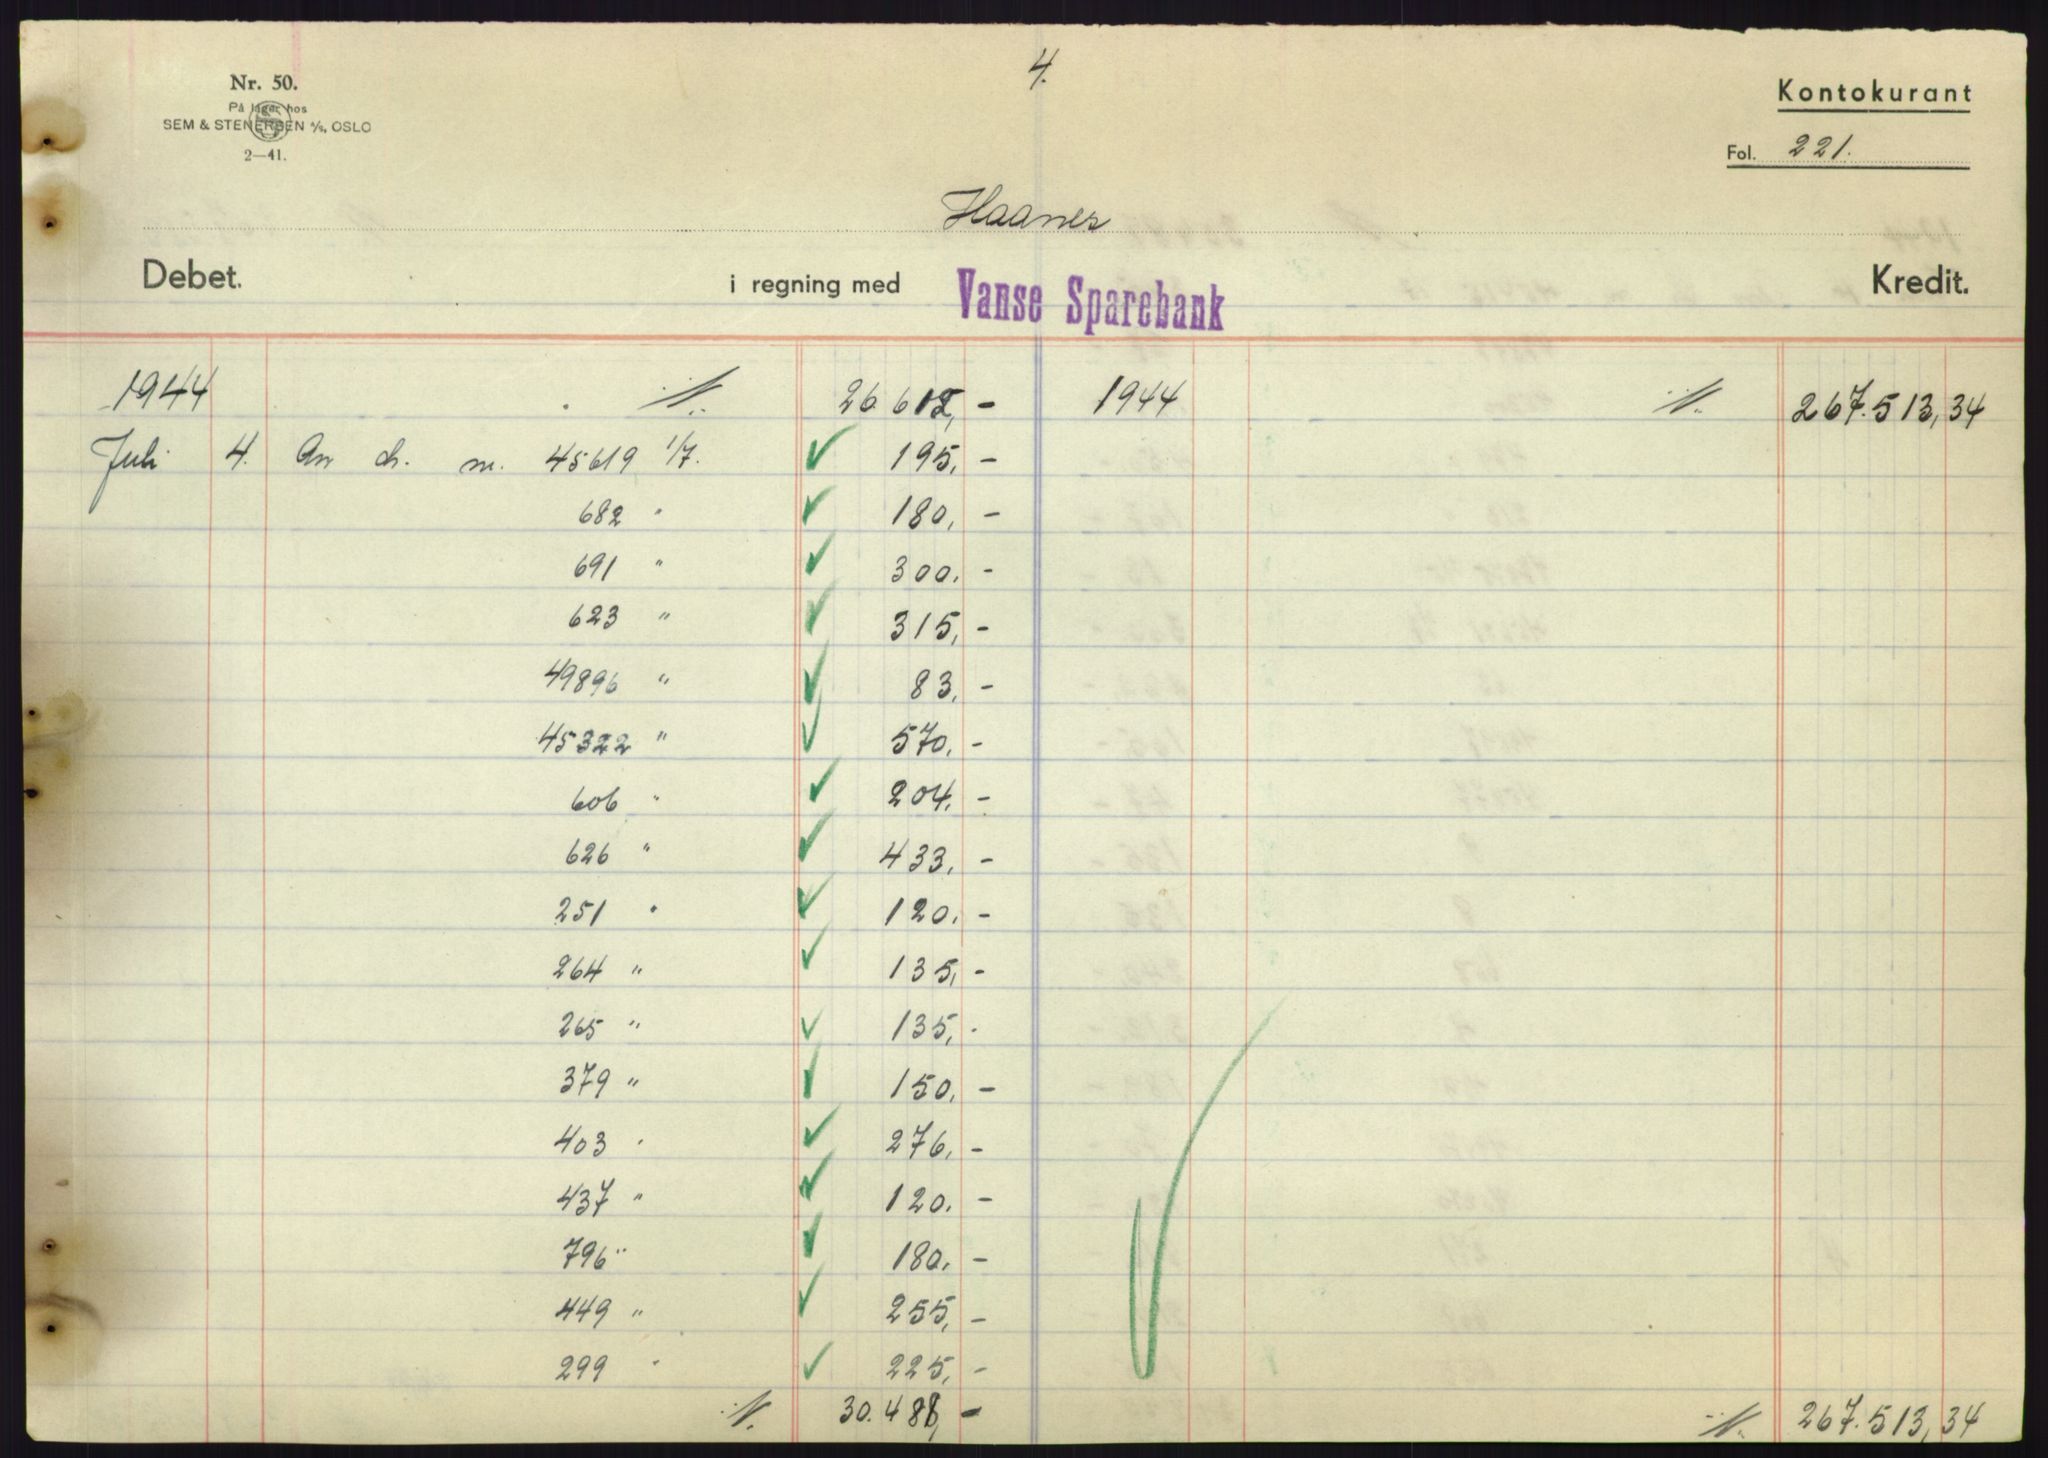 4.
Nr. 50.
På lager hos
SEM & STENERSEN A/S, OSLO
2—41.
Kontokurant
Fol. 221.
Haanes
Debet. i regning med Vanse Sparebank Kredit.
1944 ·/. 26.612,- 1944 ·/. 267.513,34
Juli 4. An ch. nr. 45619 1/7. 195,-
682 " 180,-
691 " 300,-
623 " 315,-
49896 " 83,-
45322 " 570,-
606 " 204,-
626 " 433,-
251 " 120,-
264 " 135,-
265 " 135,-
379 " 150,-
403 " 276,-
437 " 120,-
796 " 180,-
449 " 255,-
299 " 225,-
·/. 30.488,- ·/. 267.513,34